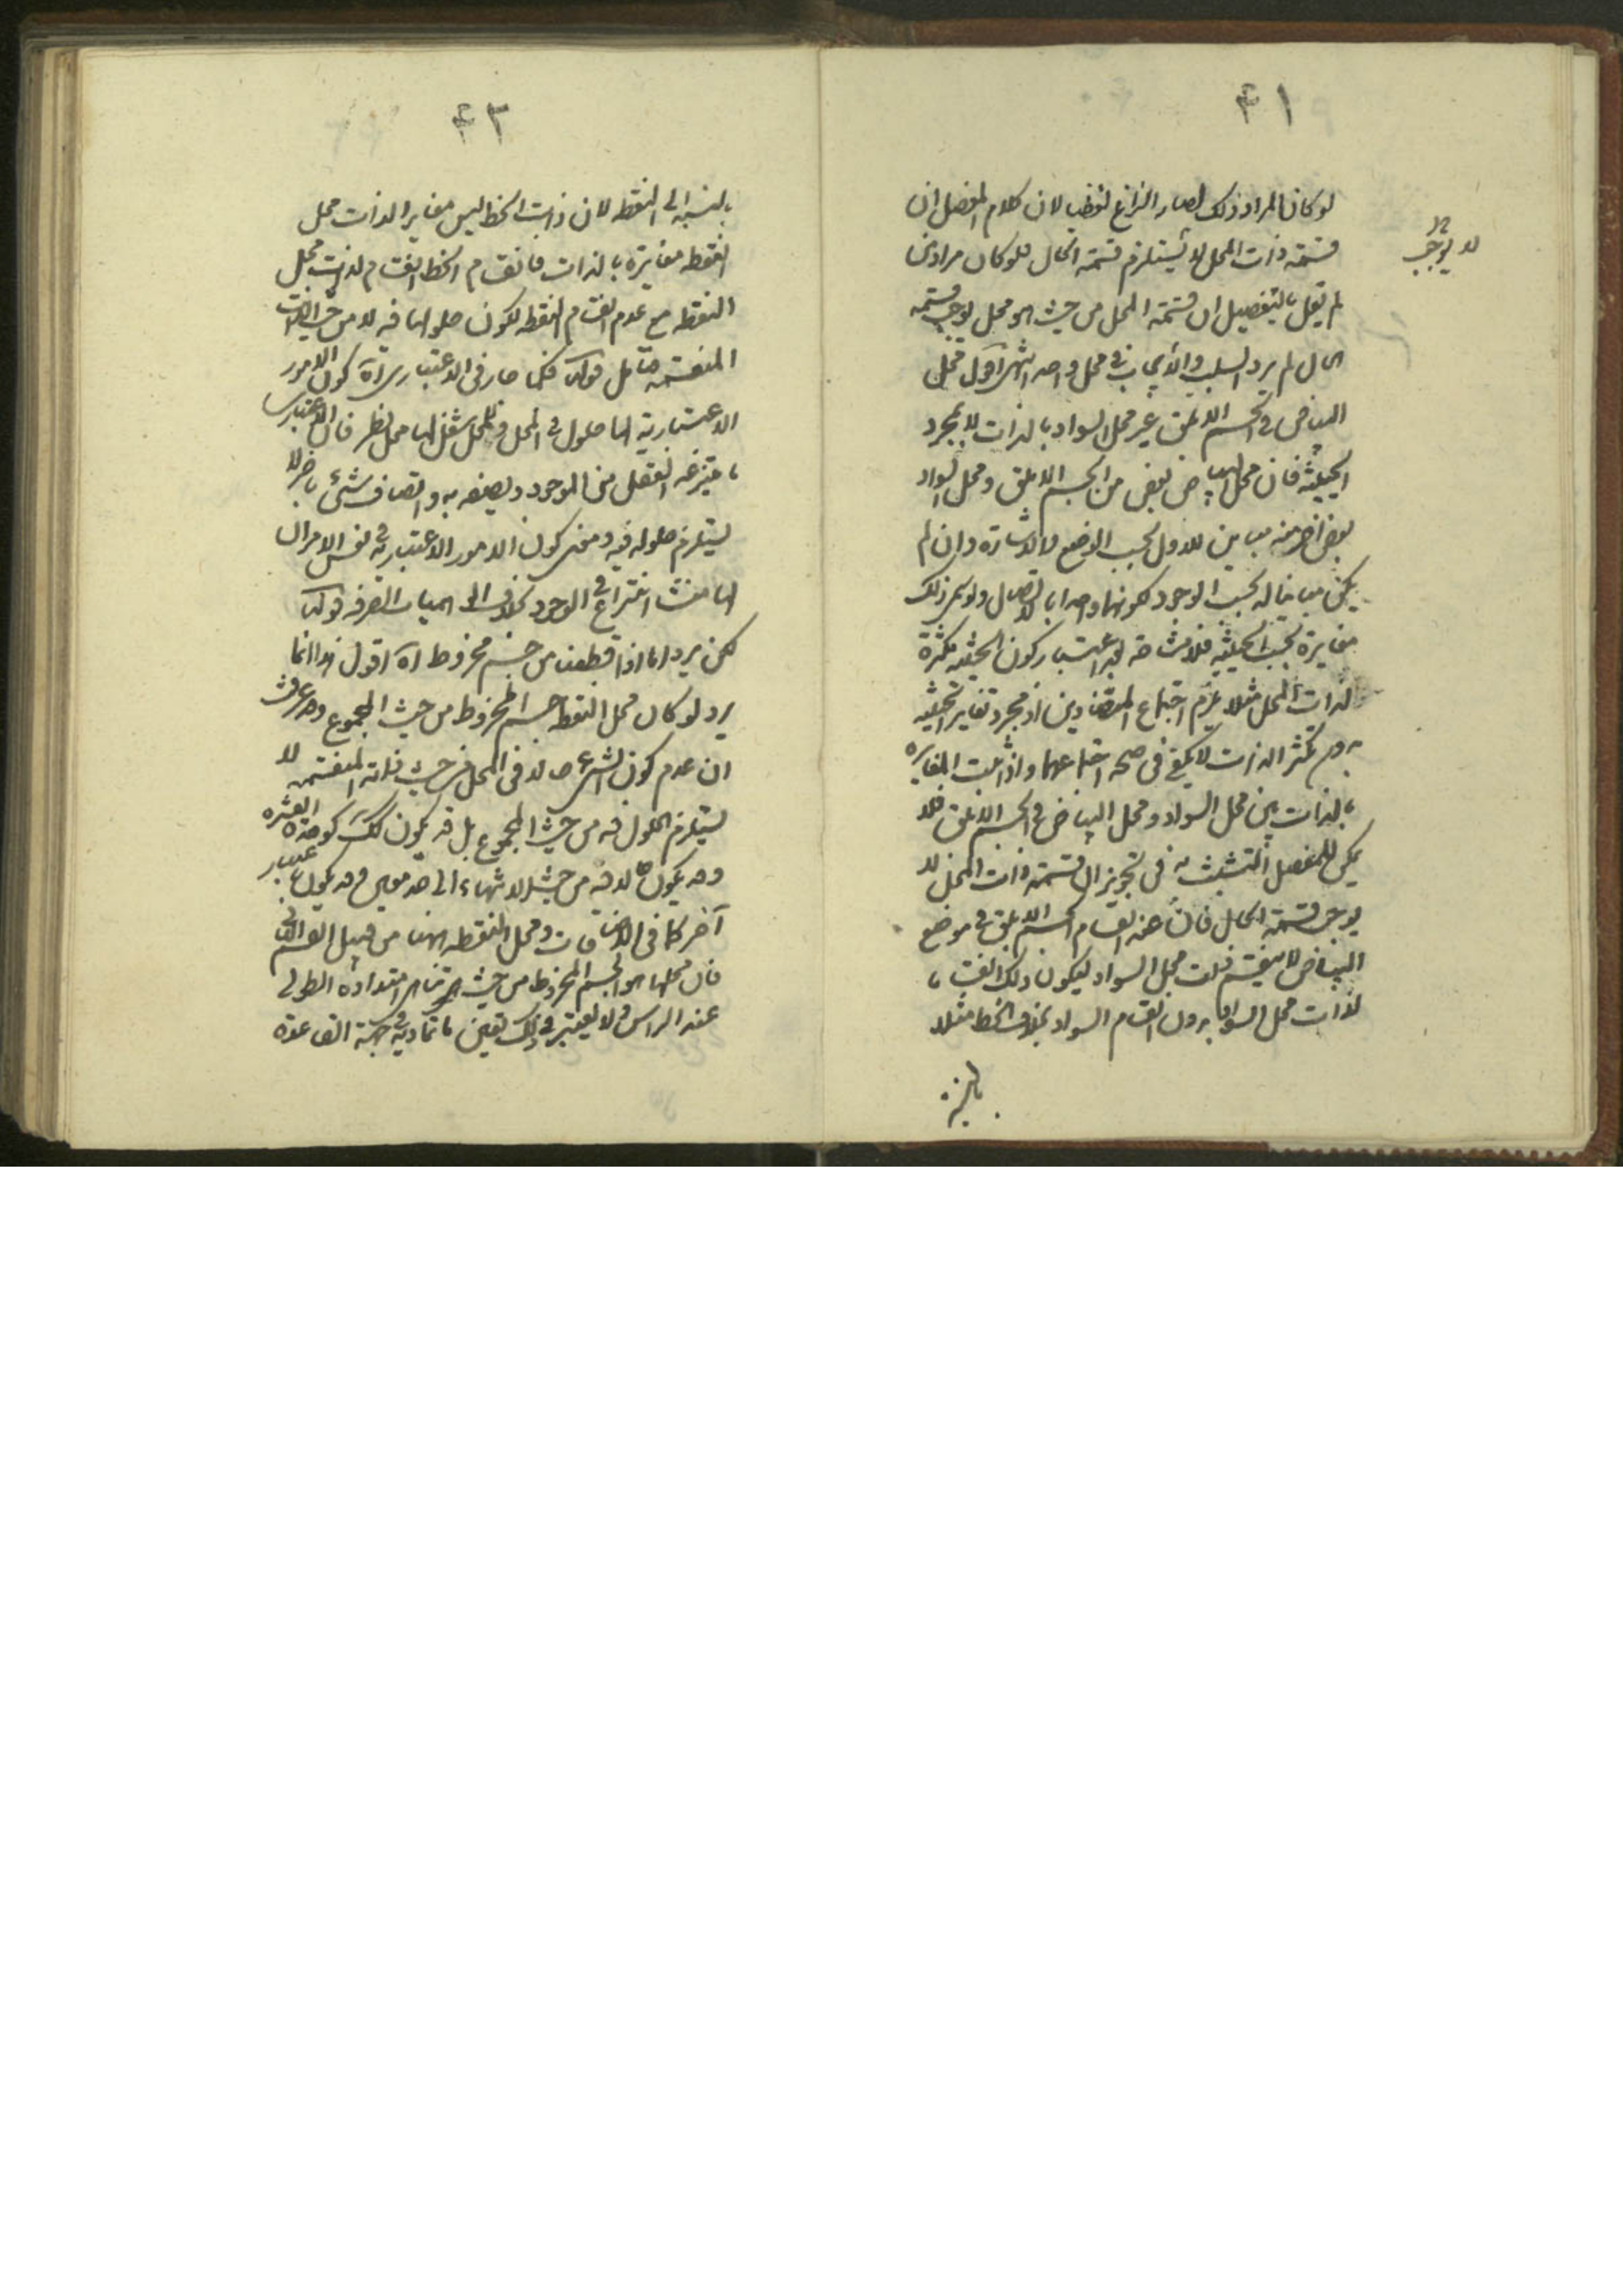 ۴۱
لو كان المراد ذلك لصار النزاع لفظيا لان كلام المفصل ان
قسمة ذات المحل لا يستلزم قسمة الحال فلو كان مراد من
لا يوجب
لم يقل بالتفصيل ان قسمة المحل من حيث هو محل يوجب قسمة
الحال لم يرد السلب والايجاب في محل واحد انتهى اقول محل
البياض في الجسم الابلق غير محل السواد بالذات لا بمجرد
الحيثية فان محل البياض بعض من الجسم الابلق ومحل السواد
بعض اخر منه مباين للاول بحسب الوضع والاشارة وان لم
يكن مباينا له بحسب الوجود لكونهما واحدا بالاتصال ولو سمى ذلك
مغايرة بحسب الحيثية فلا مشاحة بعد اعتبار كون الحيثية مكثرة
لذات المحل مثلا يلزم اجتماع المتضادين اذ مجرد تغاير الحيثية
بدون تكثر الذات لا يكفي في صحة اجتماعهما واذا ثبت المغايرة
بالذات بين محل السواد ومحل البياض في الجسم الابلق فلا
يمكن للمفصل التشبث به في تجويز ان قسمة ذات المحل لا
يوجب قسمة الحال فان عند انقسام الجسم الابلق في موضع
البياض لا ينقسم ذات محل السواد ليكون ذلك انقساما
لذات محل السواد بدون انقسام السواد بخلاف الخط مثلا
بالنسبة
۴۲
بالنسبة الى النقطة لان ذات الخط ليس مغايرا لذات محل
النقطة مغايرة بالذات فانقسام الخط انقسام لذات محل
النقطة مع عدم انقسام النقطة لكون حلولها فيه لا من حيث الذات
المنقسمة فتأمل قوله فكما صار في الاعتباري اه كون الامور
الاعتبارية لها حلول في المحل وللمحل شغل بها محل نظر فان الاعتباري
ما ينتزعه العقل من الموجود ويصفه به واتصاف شئ باخر لا
يستلزم حلوله فيه ومعنى كون الامور الاعتبارية في نفس الامر ان
لها منشأ انتزاع في الوجود بخلاف الخياليات الصرفة قوله
لكن يرد اما اذا قطعنا من جسم مخروط اه اقول هذا انما
يرد لو كان محل النقطة جسم المخروط من حيث المجموع وقد عرفت
ان عدم كون الشئ حالا في المحل من حيث ذاته المنقسمة لا
يستلزم الحلول فيه من حيث المجموع بل قد يكون كذلك كوحدة العشرة
وقد يكون حالا فيه من حيث الانتهاء الى حد معين وقد يكون باعتبار
آخر كما في الاضافات ومحل النقطة ايضا من قبيل القسم الثاني
فان محلها هو الجسم المخروط من حيث تناهى امتداده الطولى
عند الراس ولا يعتبر في ذلك تعين ما تماديه في جهة القاعدة